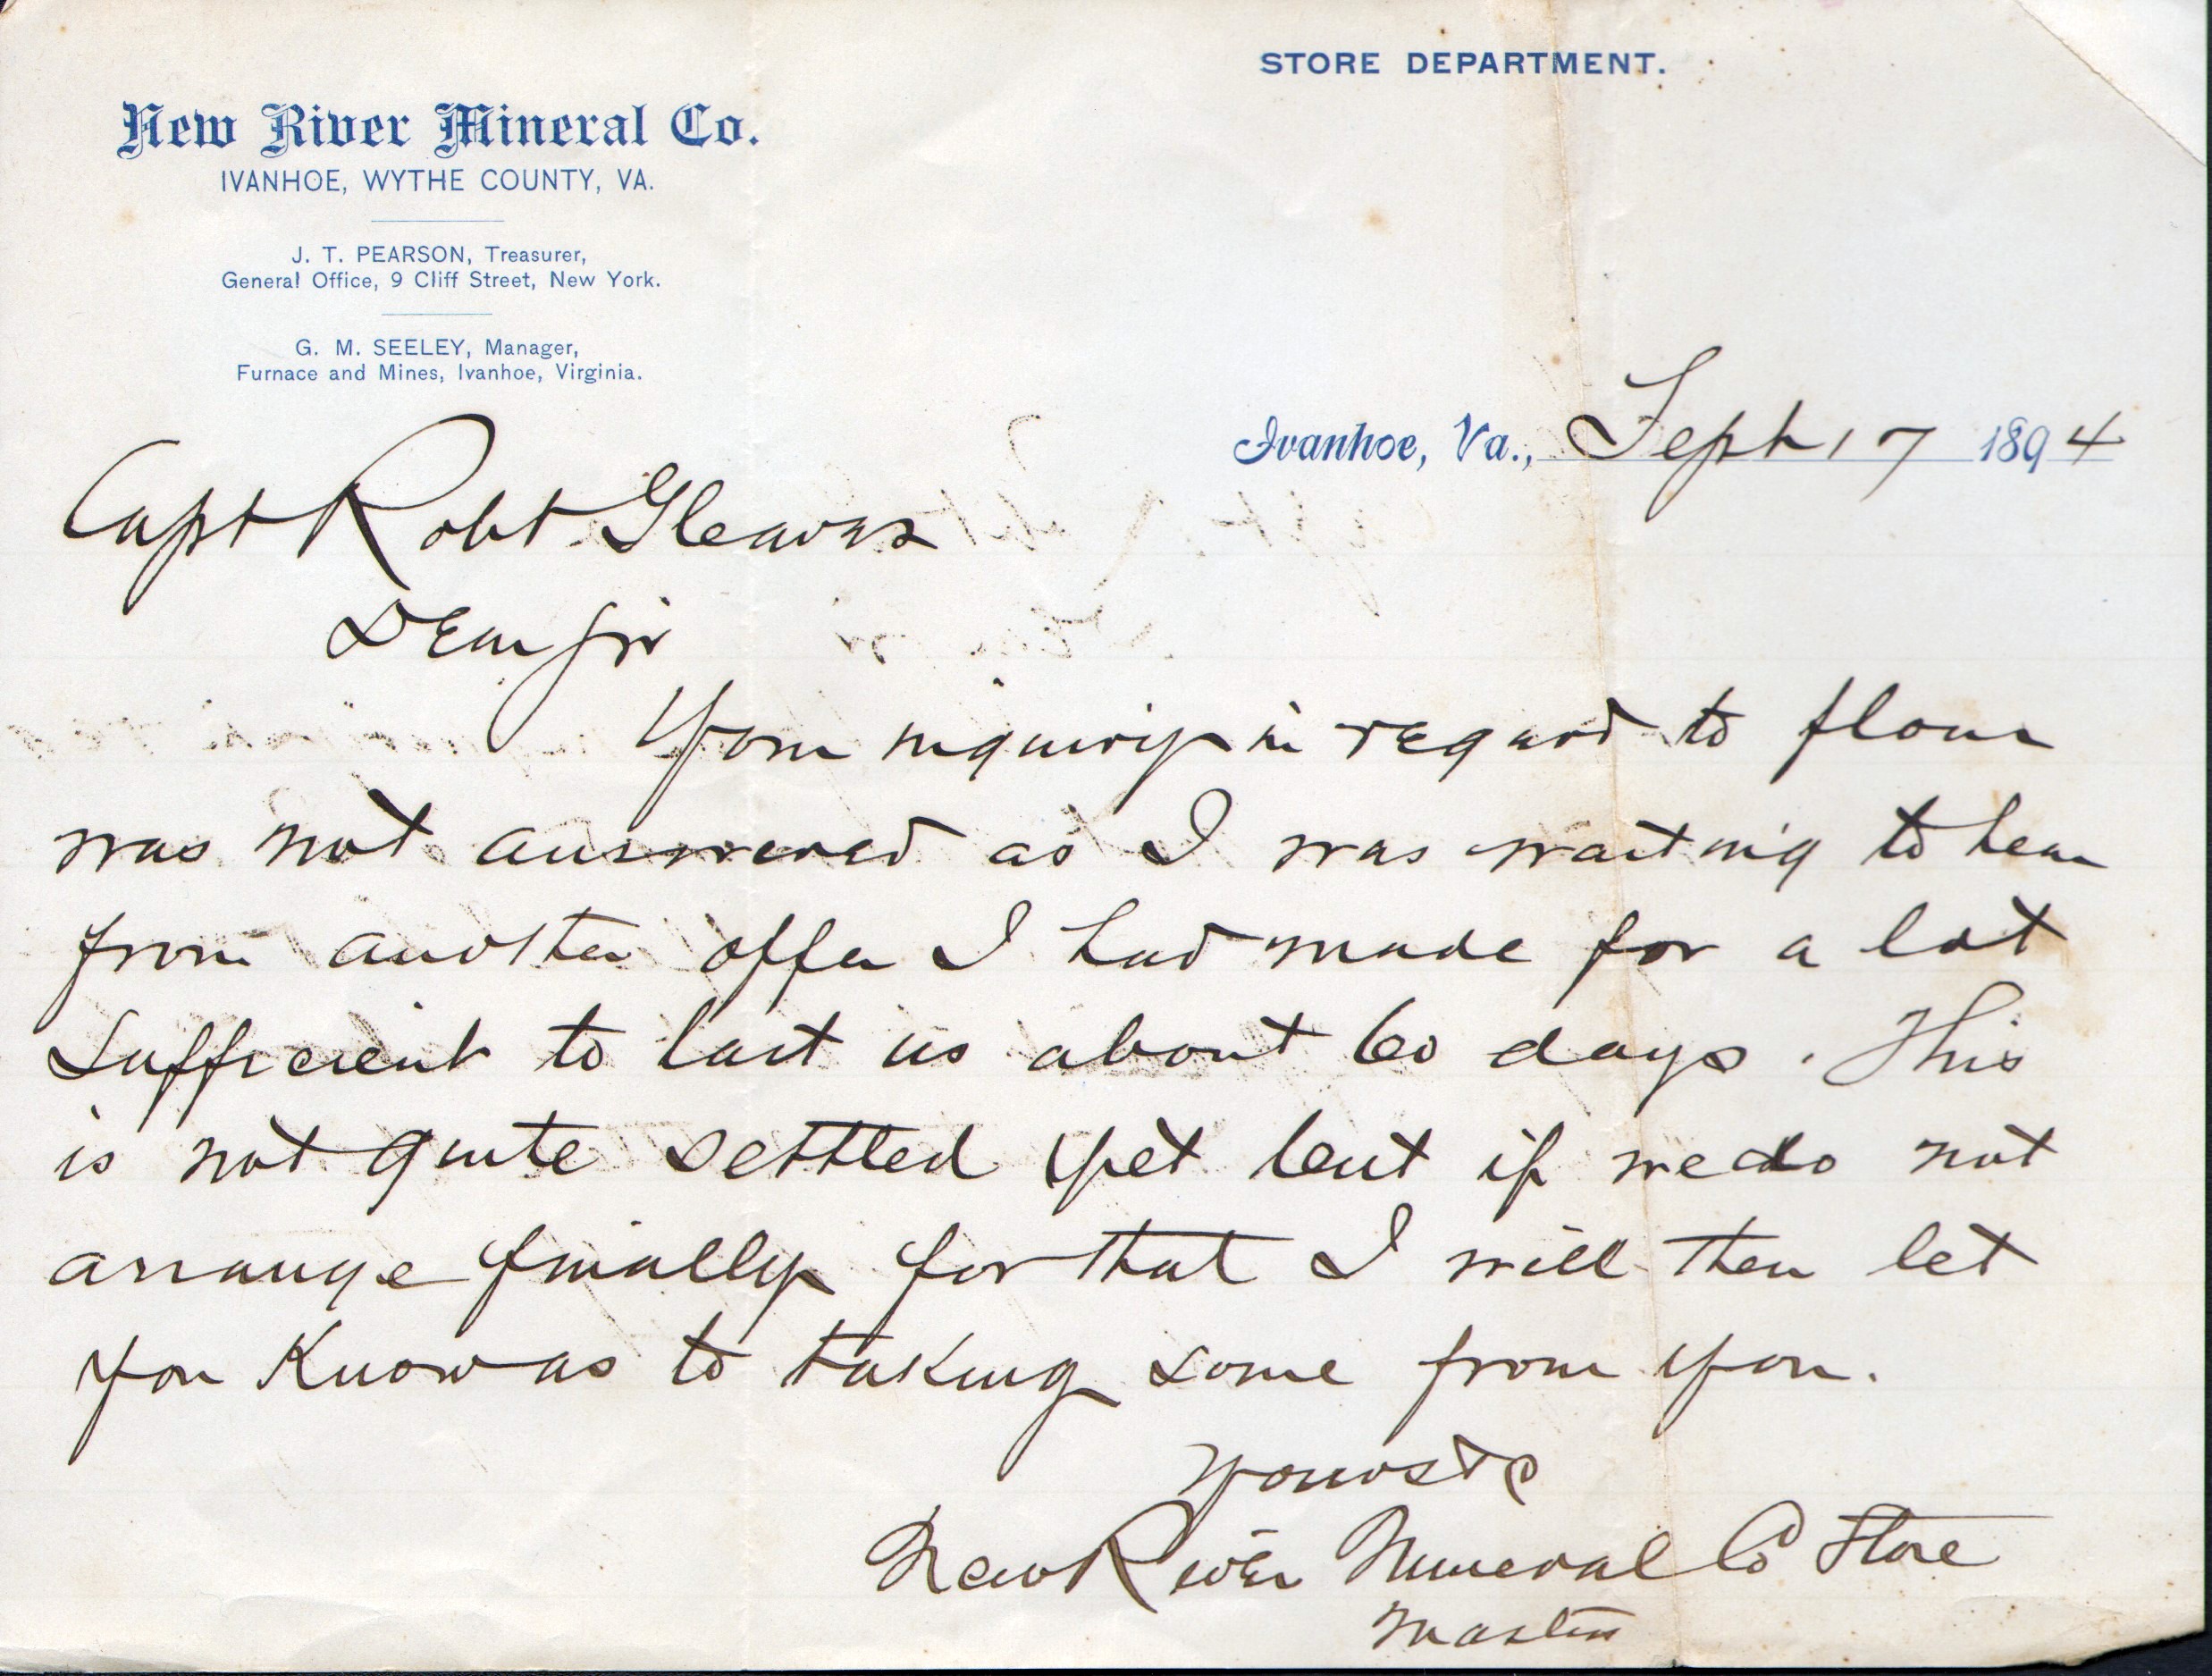 STORE DEPARTMENT.
New River Mineral Co.
IVANHOE, WYTHE COUNTY, VA.
J. T. PEARSON, Treasurer,
General Office, 9 Cliff Street, New York.
G. M. SEELEY, Manager,
Furnace and Mines, Ivanhoe, Virginia.
Ivanhoe, Va., Sept 17 1894
Capt Robt Gleaves
Dear Sir
Your inquiry in regard to flour
was not answered as I was waiting to hear
from another offer I had made for a lot
sufficient to last us about 60 days. This
is not quite settled yet but if we do not
arrange finally for that I will then let
you Know as to taking some from you.
Yours &c
New River Mineral Co Store